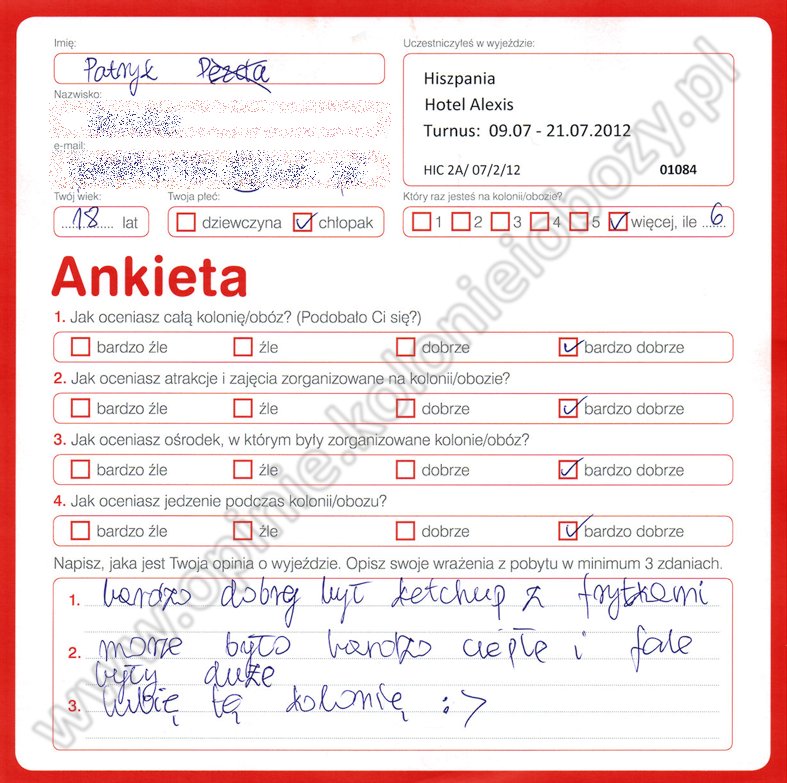 Imię:
Patryk
Uczestniczyłeś w wyjeździe:
Hiszpania
Hotel Alexis
Turnus: 09.07 - 21.07.2012
HIC 2A/ 07/2/12 01084
Nazwisko:
e-mail:
Twój wiek:
18 lat
Twoja płeć:
dziewczyna chłopak
Który raz jesteś na kolonii/obozie?
1 2 3 4 5 więcej, ile 6
Ankieta
1. Jak oceniasz całą kolonię/obóz? (Podobało Ci się?)
bardzo źle źle dobrze bardzo dobrze
2. Jak oceniasz atrakcje i zajęcia zorganizowane na kolonii/obozie?
bardzo źle źle dobrze bardzo dobrze
3. Jak oceniasz ośrodek, w którym były zorganizowane kolonie/obóz?
bardzo źle źle dobrze bardzo dobrze
4. Jak oceniasz jedzenie podczas kolonii/obozu?
bardzo źle źle dobrze bardzo dobrze
Napisz, jaka jest Twoja opinia o wyjeździe. Opisz swoje wrażenia z pobytu w minimum 3 zdaniach.
1. bardzo dobry był ketchup z frytkami
2.морze było bardzo ciepłe i fale
były duże
3. lubię tą kolonię :>
www.opinie.kolonieiobozy.pl